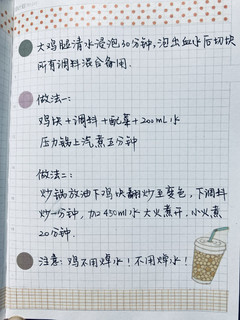 大鸡腿清水浸泡30分钟,泡出血水后切块
所有调料混合备用.
做法一:
鸡块+调料+配菜+200ml水
压力锅上汽煮五分钟
做法二:
炒锅放油下鸡块翻炒至变色,下调料
炒一分钟,加450ml水大火煮开,小火煮
20分钟.
注意:鸡不用焯水!不用焯水!